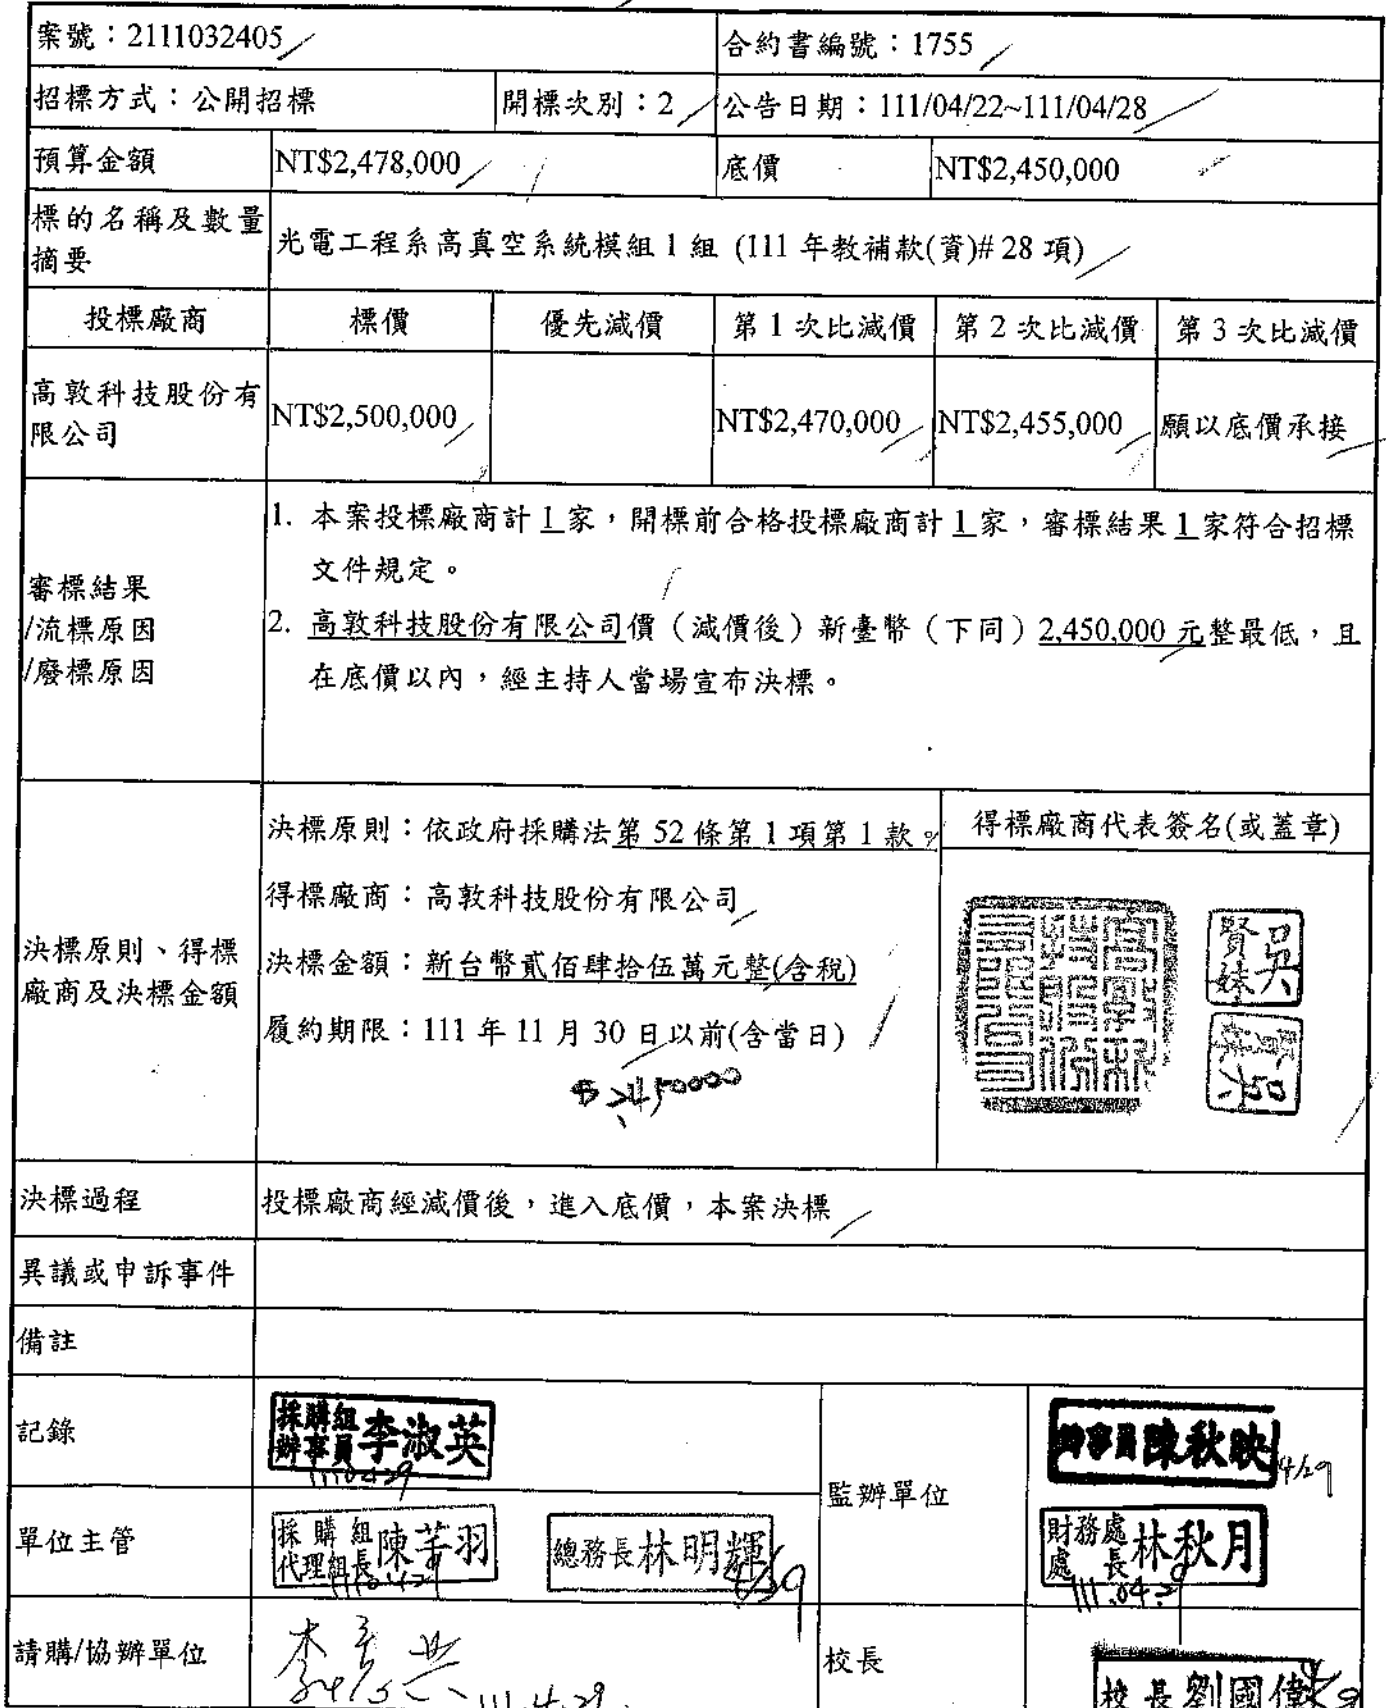 案號：2111032405
合約書編號：1755
招標方式：公開招標
開標次別：2
公告日期：111/04/22~111/04/28
預算金額
NT$2,478,000
底價
NT$2,450,000
標的名稱及數量
摘要
光電工程系高真空系統模組 1 組 (111 年教補款(資)# 28 項)
投標廠商
標價
優先減價
第 1 次比減價
第 2 次比減價
第 3 次比減價
高敦科技股份有
限公司
NT$2,500,000
NT$2,470,000
NT$2,455,000
願以底價承接
審標結果
/流標原因
/廢標原因
1. 本案投標廠商計 1 家，開標前合格投標廠商計 1 家，審標結果 1 家符合招標
文件規定。
2. 高敦科技股份有限公司價（減價後）新臺幣（下同）2,450,000 元整最低，且
在底價以內，經主持人當場宣布決標。
決標原則、得標
廠商及決標金額
決標原則：依政府採購法第 52 條第 1 項第 1 款。
得標廠商：高敦科技股份有限公司
決標金額：新台幣貳佰肆拾伍萬元整(含稅)
履約期限：111 年 11 月 30 日以前(含當日)
$ 2,450000
得標廠商代表簽名(或蓋章)
吳賢妹
決標過程
投標廠商經減價後，進入底價，本案決標
異議或申訴事件
備註
記錄
採購組
辦事員 李淑英
1110429
監辦單位
辦事員陳秋映
4/29
單位主管
採購組
代理組長 陳芊羽
1110429
總務長林明輝
4/29
財務處
處長 林秋月
111.04.29
請購/協辦單位
111.4.29.
校長
校長劉國偉